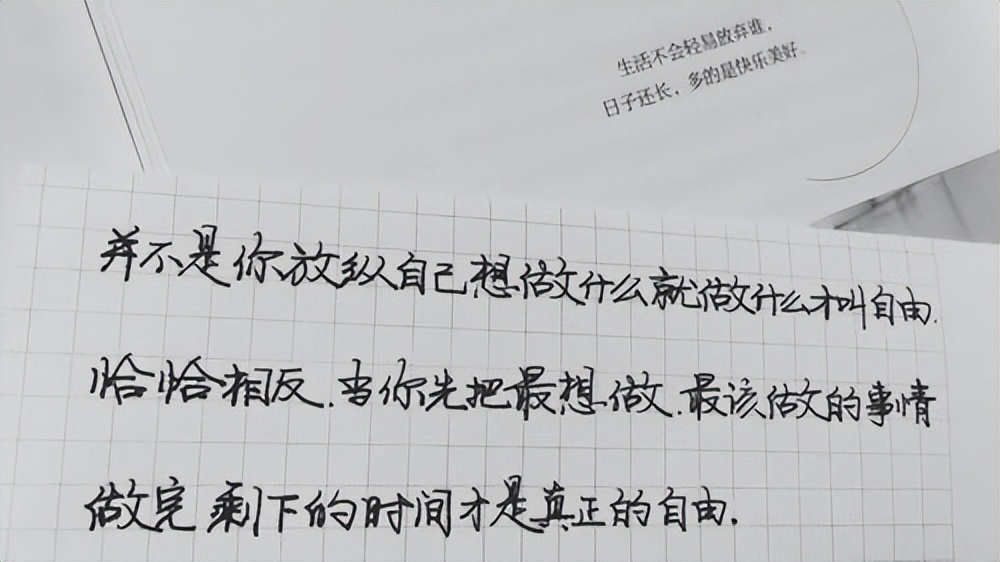 生活不会轻易放弃谁，
日子还长，多的是快乐美好
并不是你放纵自己想做什么就做什么才叫自由.
恰恰相反.当你先把最想做.最该做的事情
做完剩下的时间才是真正的自由.